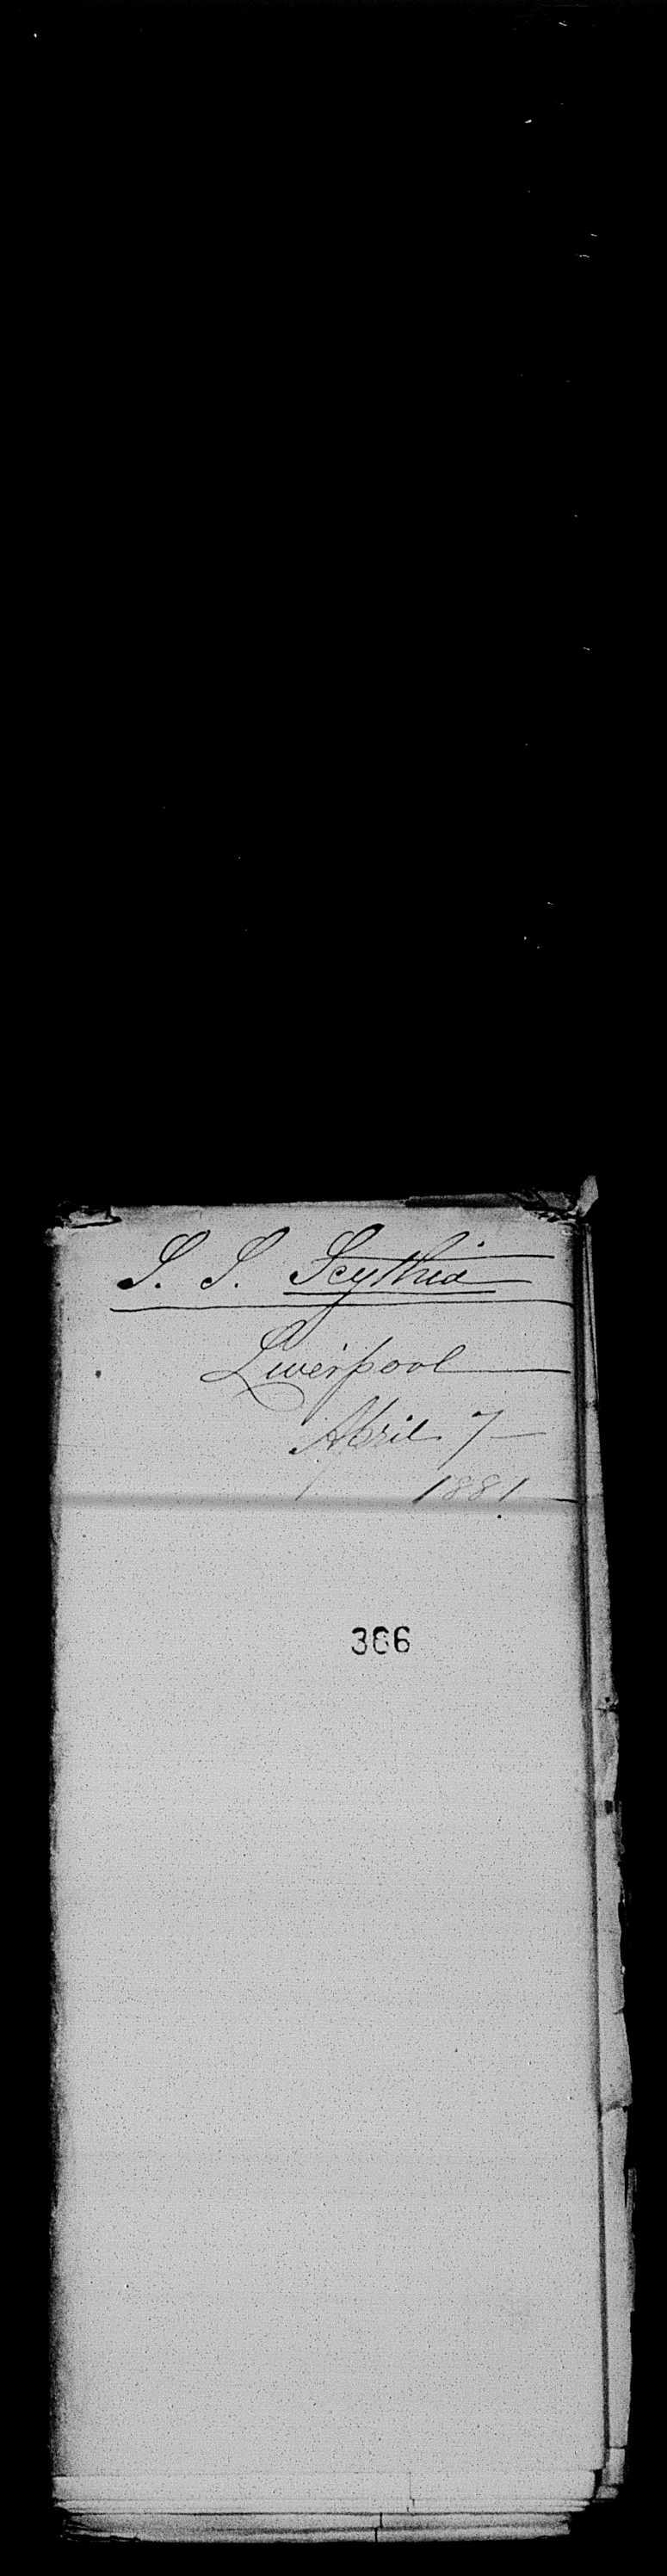 S. S. Scythia
Liverpool
April 7
1881
366